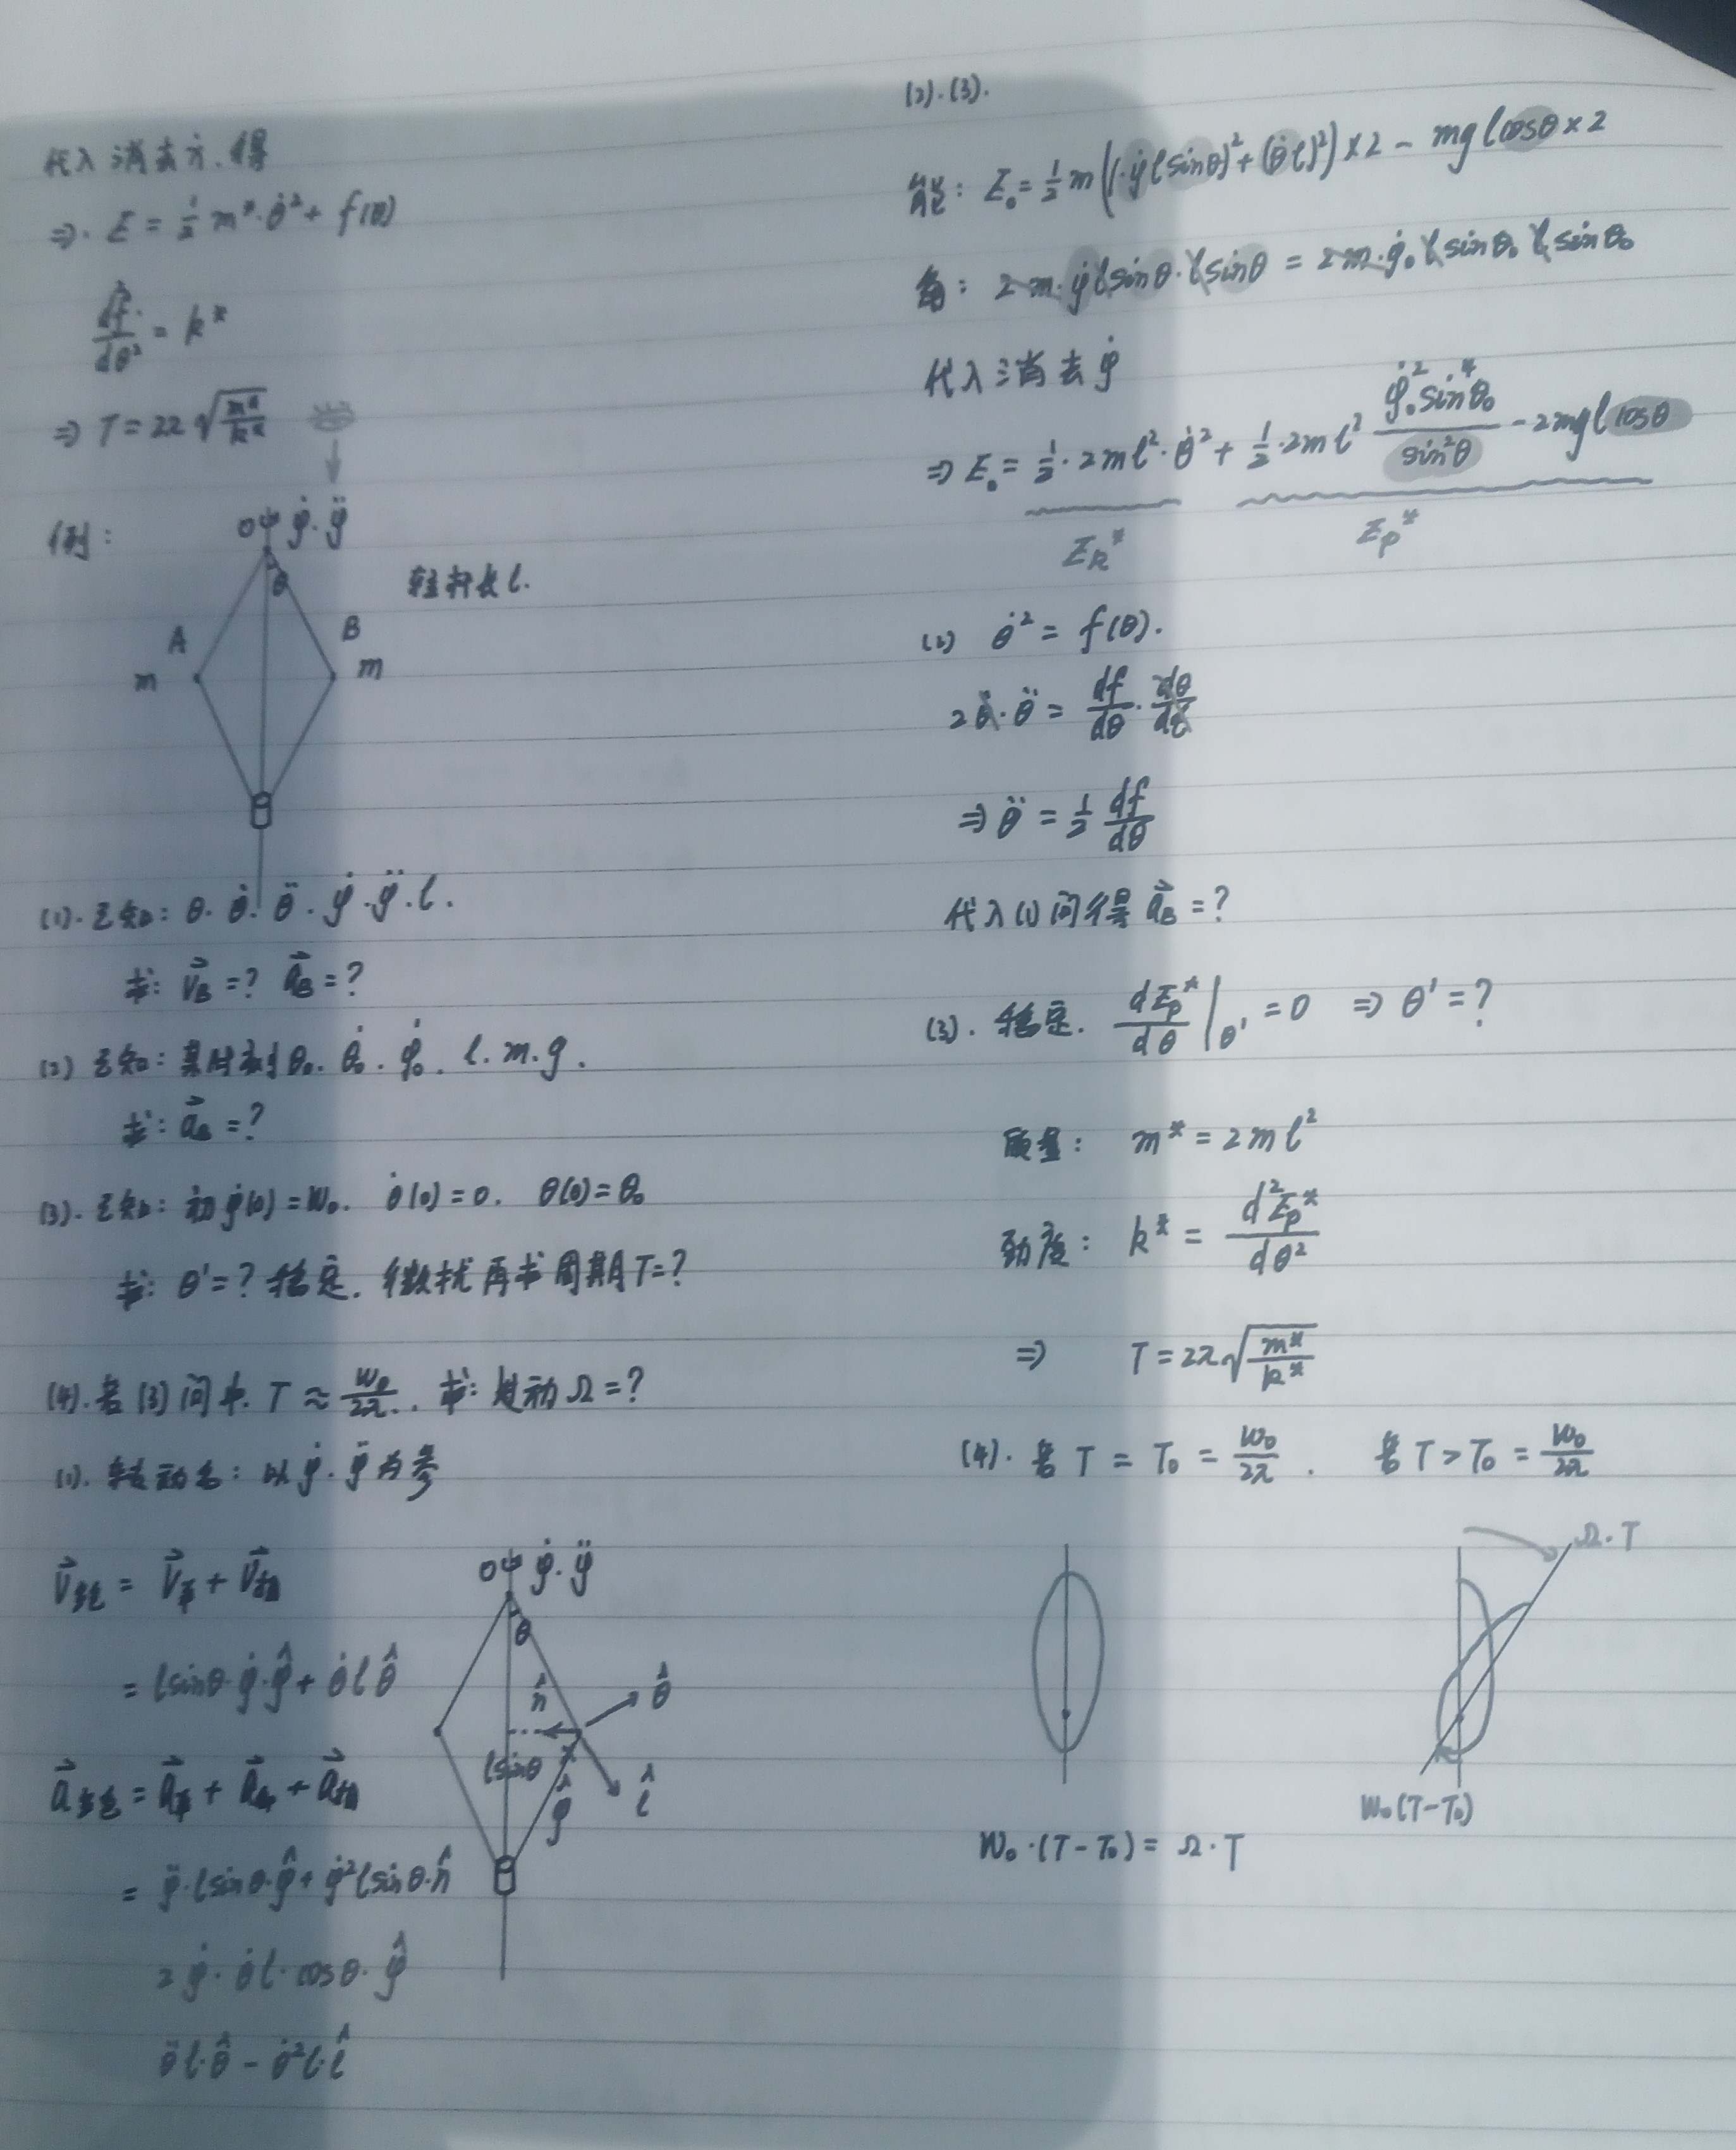 代入消去ẋ.得
⇒. E = ½ m*·θ̇² + f(θ)
df/dθ² = k*
⇒ T = 2π√(m*/k*)
例:
O φ̇.φ̈
θ
轻杆长 l.
A
B
m
m
(1).已知: θ. θ̇. θ̈. φ̇. φ̈. l.
求: v⃗_B = ? a⃗_B = ?
(2) 已知: 某时刻 θ₀. θ̇₀. φ̇₀. l. m. g.
求: a⃗_B = ?
(3). 已知: 初 φ̇(0) = W₀. θ̇(0) = 0. θ(0) = θ₀
求: θ' = ? 稳定. 微扰再求周期 T = ?
(4). 若(3)问中. T ≈ W₀/2π. 求: 进动 Ω = ?
(1). 转动系: 以 φ̇. φ̈ 为参
v⃗绝 = v⃗牵 + v⃗相
= l sinθ·φ̇·φ̂ + θ̇ l θ̂
a⃗绝 = a⃗牵 + a⃗科 + a⃗相
= φ̈·l sinθ·φ̂ + φ̇² l sinθ·n̂
2φ̇·θ̇ l·cosθ·φ̂
θ̈ l·θ̂ − θ̇² l·l̂
O φ̇.φ̈
θ
n̂
θ̂
l sinθ
φ̂
l̂
(2).(3).
能: E₀ = ½ m((φ̇ l sinθ)² + (θ̇ l)²)×2 − mg l cosθ×2
角: 2m·φ̇ l sinθ·l sinθ = 2m·φ̇₀ l sinθ₀ l sinθ₀
代入消去 φ̇
⇒ E₀ = ½·2ml²·θ̇² + ½·2ml² φ̇₀² sin⁴θ₀/sin²θ − 2mg l cosθ
E_k*
E_p*
(2) θ̇² = f(θ).
2θ̇·θ̈ = df/dθ · dθ/dt
⇒ θ̈ = ½ df/dθ
代入(1)问得 a⃗_B = ?
(3). 稳定. dE_p*/dθ |θ' = 0 ⇒ θ' = ?
质量: m* = 2ml²
劲度: k* = d²E_p*/dθ²
⇒ T = 2π√(m*/k*)
(4). 若 T = T₀ = W₀/2π. 若 T > T₀ = W₀/2π
Ω·T
W₀(T−T₀)
W₀·(T−T₀) = Ω·T